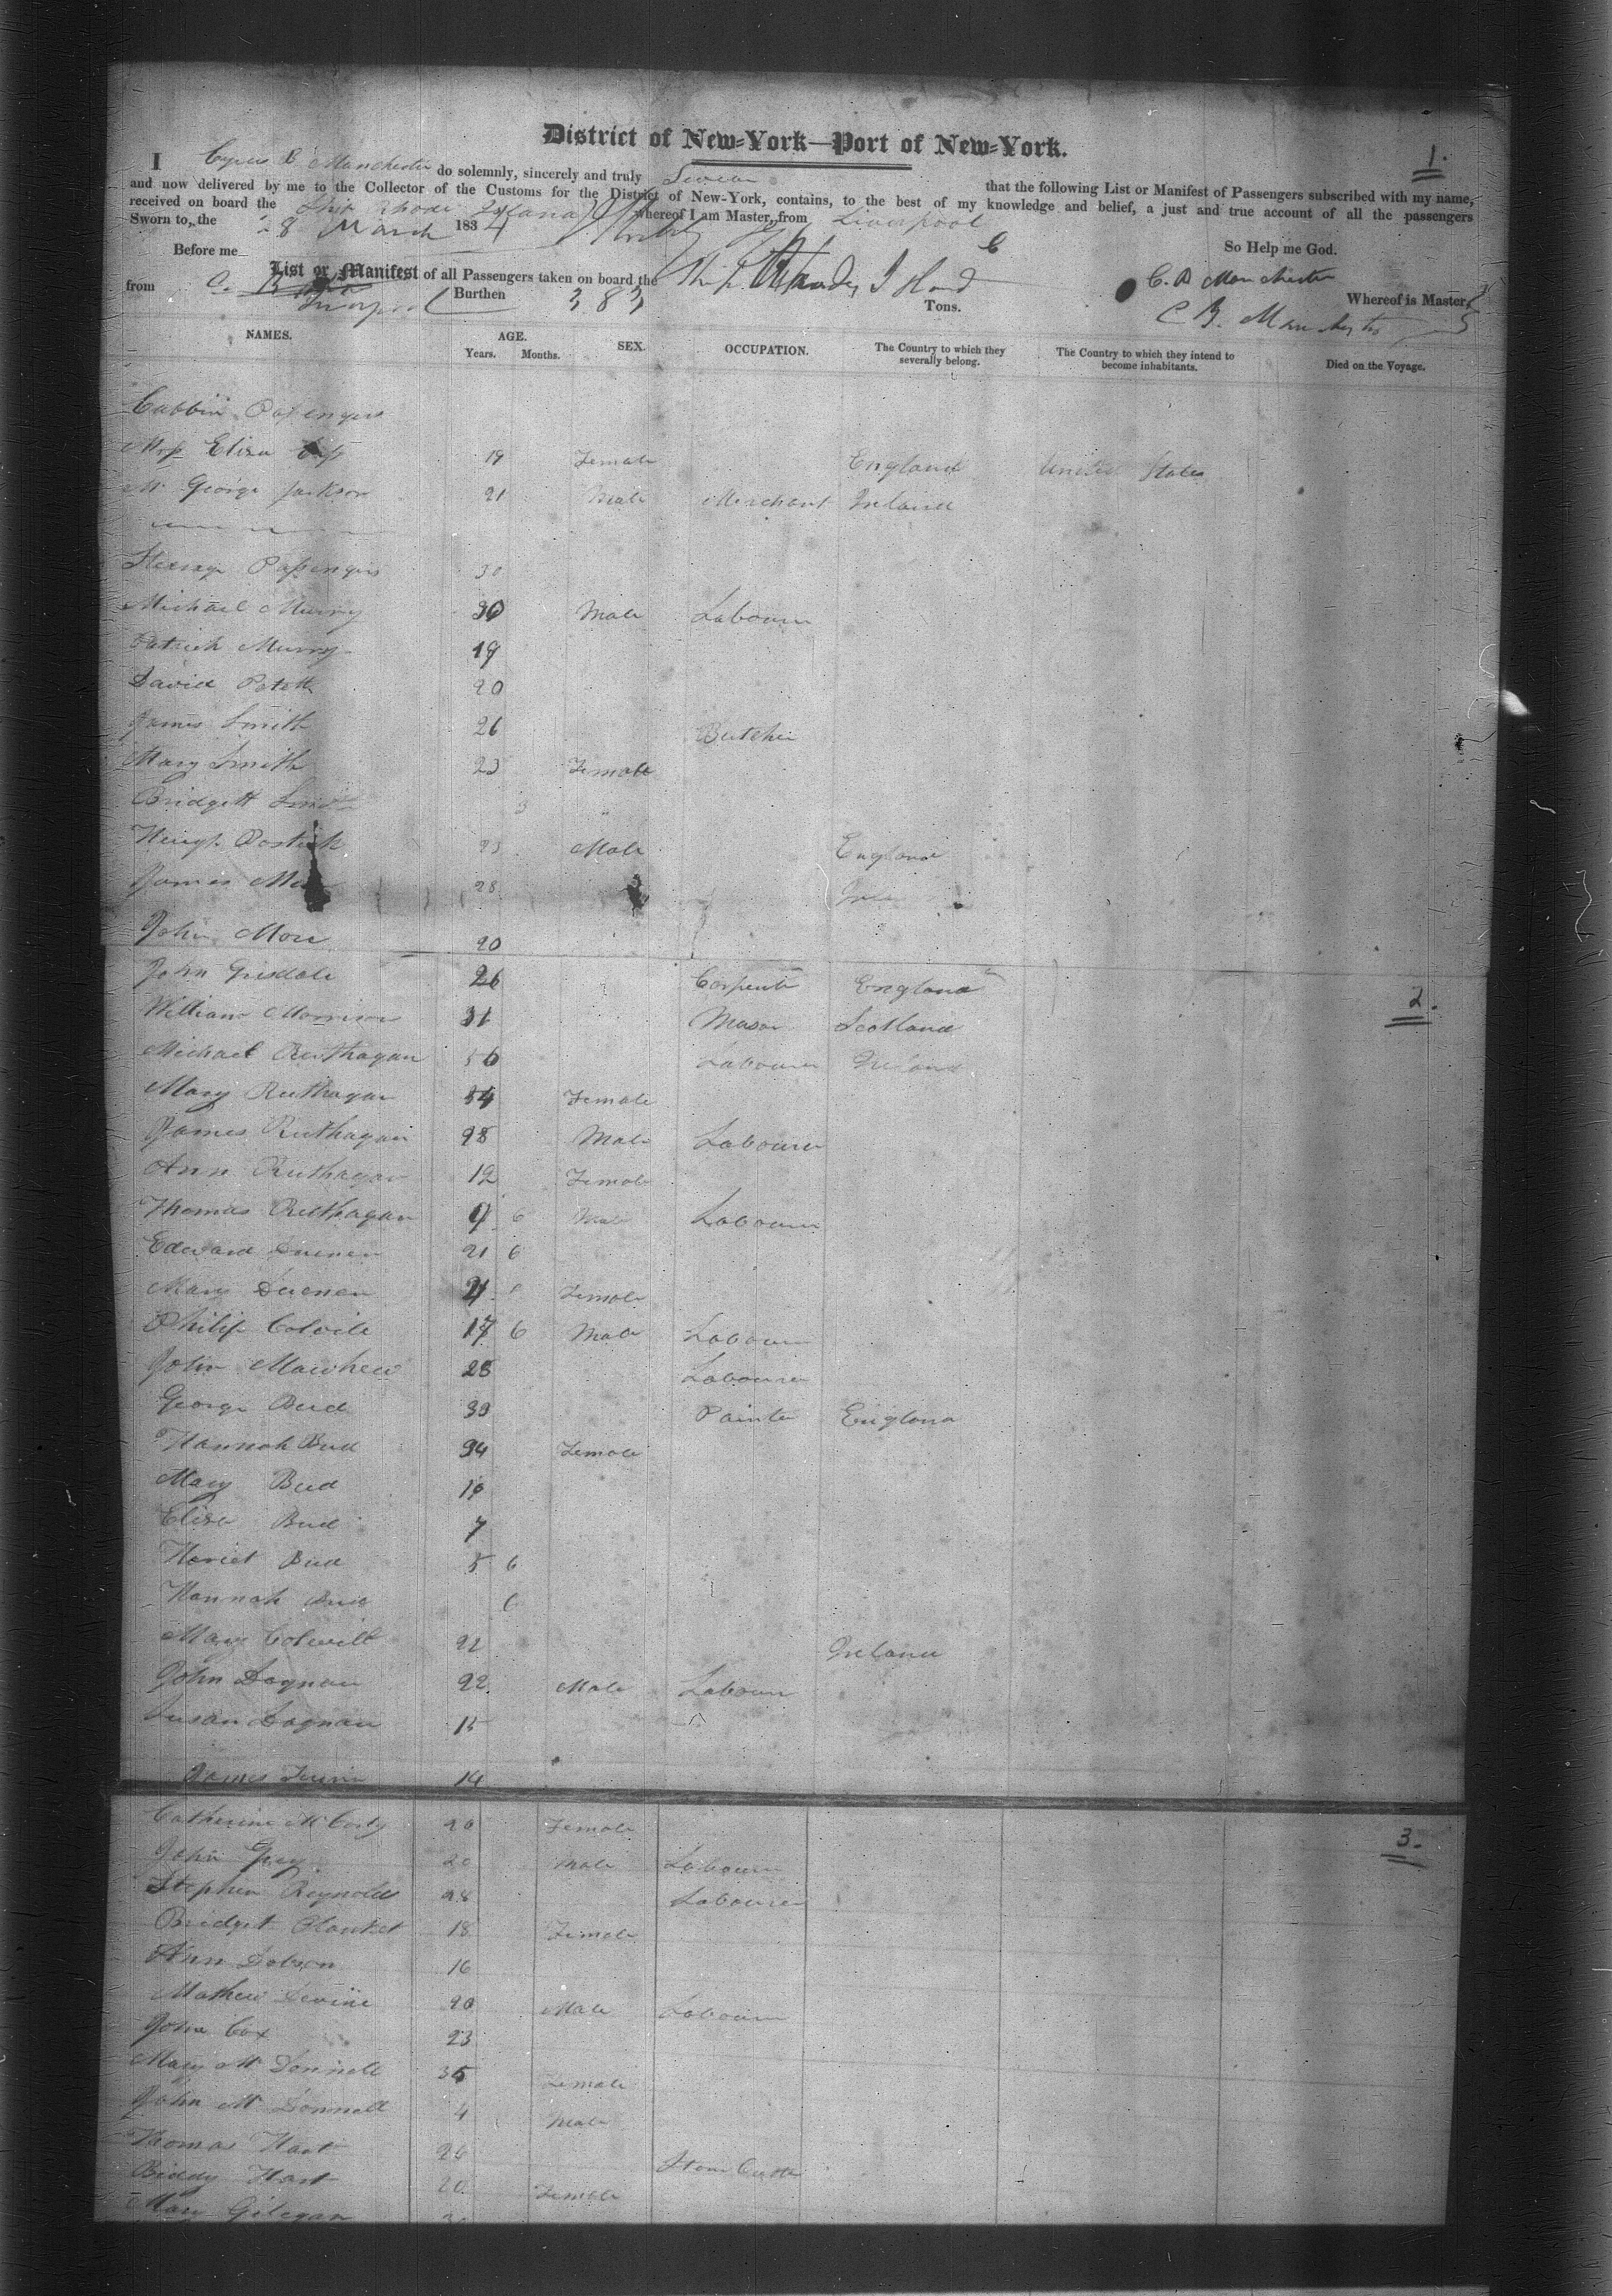 District of New-York—Port of New-York.
1.
I Cyrus B Manchester do solemnly, sincerely and truly Swear that the following List or Manifest of Passengers subscribed with my name,
and now delivered by me to the Collector of the Customs for the District of New-York, contains, to the best of my knowledge and belief, a just and true account of all the passengers
received on board the Ship Rhode Island whereof I am Master, from Liverpool
Sworn to, the 28 March 1834
Before me So Help me God.
C. B Manchester
List or Manifest of all Passengers taken on board the Ship Rhode Island Whereof is Master,
from Liverpool Burthen 383 Tons. C B. Manchester
NAMES. AGE. SEX. OCCUPATION. The Country to which they severally belong. The Country to which they intend to become inhabitants. Died on the Voyage.
Years. Months.
Cabbin Passengers
Miss Eliza 19 Female England United States
Mr George Jackson 21 Male Merchant Ireland
Steerage Passengers 30
Michael Murry 30 Male Labourer
Patrick Murry 19
David 20
James Smith 26 Butcher
Mary Smith 23 Female
Bridgett Smith 3 "
Hugh Male England
James 28
John More 20
John Grisdale 26 Carpenter England
2.
William Morrison 31 Mason Scotland
Michael Ruthagan 56 Labourer Ireland
Mary Ruthagan 54 Female
James Ruthagan 28 Male Labourer
Ann Ruthagan 12 Female
Thomas Ruthagan 9 6 Male Labourer
Edward 21 6
Mary 21 Female
Philip Colvile 17 6 Male Labourer
John Mawhew 28 Labourer
George Bud 39 Painter England
Hannah Bud 34 Female
Mary Bud 10
Eliza Bud 7
Hariet Bud 5 6
Hannah Bud 6
Mary 22 Ireland
John Dagnan 22 Male Labourer
Susan Dagnan 15
James 14
Catherine McCarty 20 Female
3.
John Grey 20 Male Labourer
Stephen Reynolds 28 Labourer
Bridget Plunket 18 Female
Ann Dobson 16
Mathew Devine 20 Male Labourer
John Cox 23
Mary McDonnell 35 Female
John McDonnell 4 Male
Thomas Hart 26 Stone Cutter
Biddy Hart 20 Female
Mary Gilegan